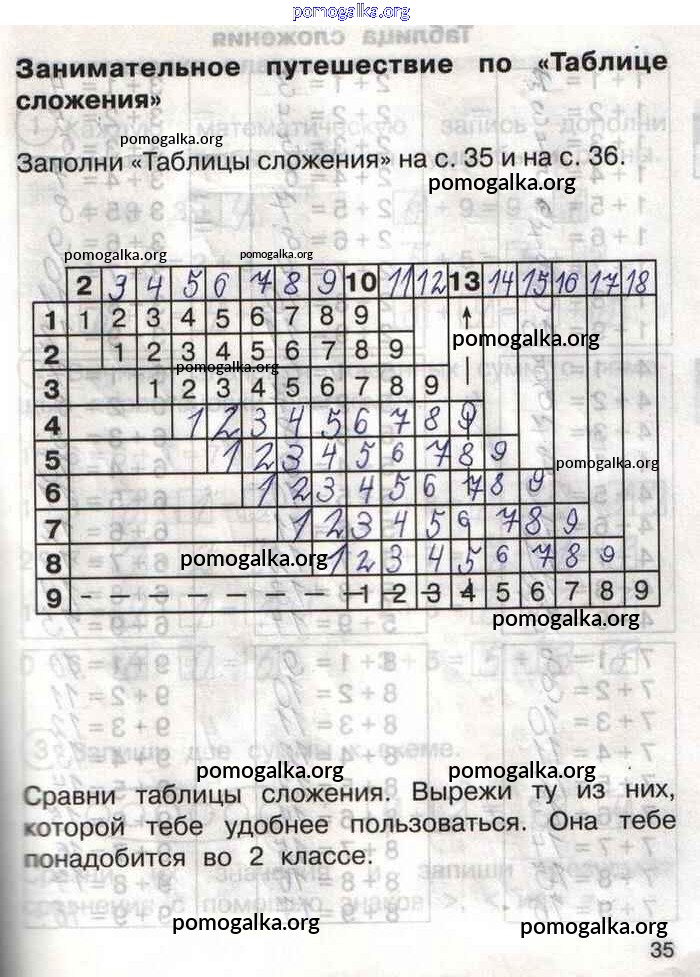 pomogalka.org
Таблица сложения
Занимательное путешествие по «Таблице
сложения»
pomogalka.org
Заполни «Таблицы сложения» на с. 35 и на с. 36.
pomogalka.org
pomogalka.org pomogalka.org
2 3 4 5 6 7 8 9 10 11 12 13 14 15 16 17 18
1 1 2 3 4 5 6 7 8 9
2 1 2 3 4 5 6 7 8 9
pomogalka.org
pomogalka.org
3 1 2 3 4 5 6 7 8 9
4 1 2 3 4 5 6 7 8 9
5 1 2 3 4 5 6 7 8 9
pomogalka.org
6 1 2 3 4 5 6 7 8 9
7 1 2 3 4 5 6 7 8 9
8 1 2 3 4 5 6 7 8 9
pomogalka.org
9 - - - - - - - - 1 2 3 4 5 6 7 8 9
pomogalka.org
pomogalka.org pomogalka.org
Сравни таблицы сложения. Вырежи ту из них,
которой тебе удобнее пользоваться. Она тебе
понадобится во 2 классе.
pomogalka.org pomogalka.org
35